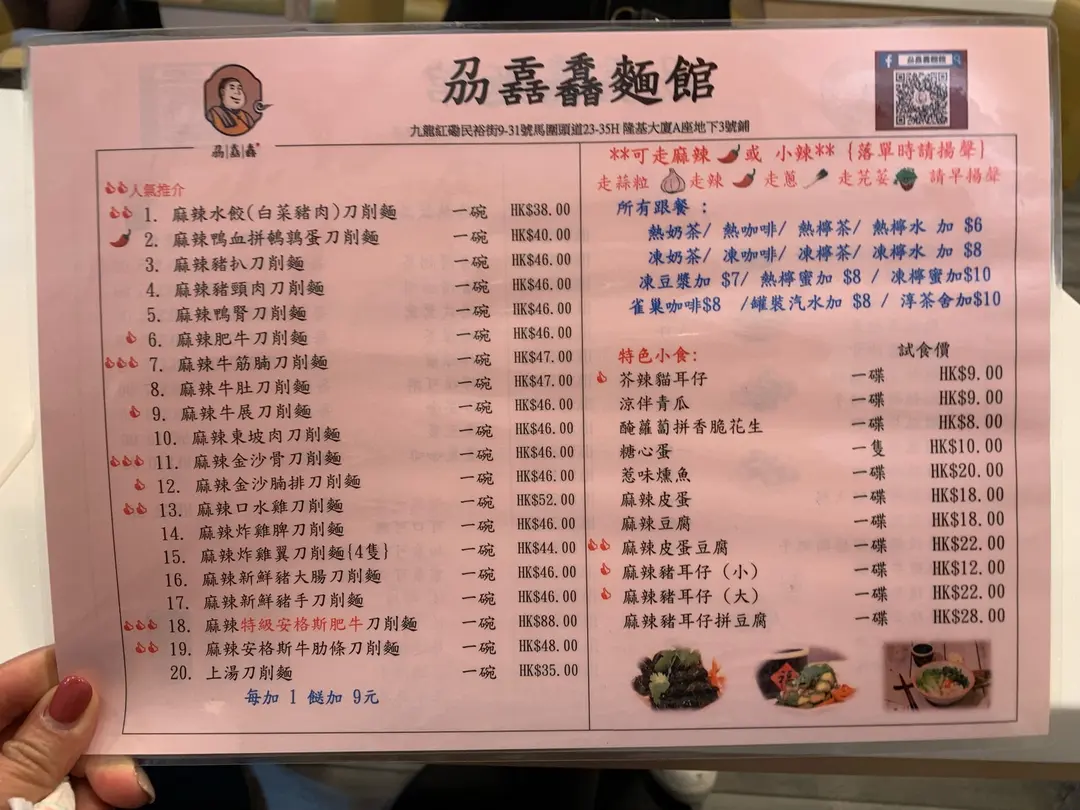 刕壵馫麵館
九龍紅磡民裕街9-31號馬圍頭道23-35H 隆基大廈A座地下3號鋪
人氣推介
1. 麻辣水餃(白菜豬肉)刀削麵 一碗 HK$38.00
2. 麻辣鴨血拼鵪鶉蛋刀削麵 一碗 HK$40.00
3. 麻辣豬扒刀削麵 一碗 HK$46.00
4. 麻辣豬頸肉刀削麵 一碗 HK$46.00
5. 麻辣鴨腎刀削麵 一碗 HK$46.00
6. 麻辣肥牛刀削麵 一碗 HK$46.00
7. 麻辣牛筋腩刀削麵 一碗 HK$47.00
8. 麻辣牛肚刀削麵 一碗 HK$47.00
9. 麻辣牛展刀削麵 一碗 HK$46.00
10. 麻辣東坡肉刀削麵 一碗 HK$46.00
11. 麻辣金沙骨刀削麵 一碗 HK$46.00
12. 麻辣金沙腩排刀削麵 一碗 HK$46.00
13. 麻辣口水雞刀削麵 一碗 HK$52.00
14. 麻辣炸雞脾刀削麵 一碗 HK$46.00
15. 麻辣炸雞翼刀削麵{4隻} 一碗 HK$44.00
16. 麻辣新鮮豬大腸刀削麵 一碗 HK$46.00
17. 麻辣新鮮豬手刀削麵 一碗 HK$46.00
18. 麻辣特級安格斯肥牛刀削麵 一碗 HK$88.00
19. 麻辣安格斯牛肋條刀削麵 一碗 HK$48.00
20. 上湯刀削麵 一碗 HK$35.00
每加 1 餸加 9元
**可走麻辣 或 小辣** {落單時請揚聲}
走蒜粒 走辣 走蔥 走芫荽 請早揚聲
所有跟餐 :
熱奶茶/ 熱咖啡/ 熱檸茶/ 熱檸水 加 $6
凍奶茶/ 凍咖啡/ 凍檸茶/ 凍檸水 加 $8
凍豆漿加 $7/ 熱檸蜜加 $8 / 凍檸蜜加$10
雀巢咖啡$8 /罐裝汽水加 $8 / 淳茶舍加$10
特色小食: 試食價
芥辣貓耳仔 一碟 HK$9.00
涼伴青瓜 一碟 HK$9.00
醃蘿蔔拼香脆花生 一碟 HK$8.00
糖心蛋 一隻 HK$10.00
惹味燻魚 一碟 HK$20.00
麻辣皮蛋 一碟 HK$18.00
麻辣豆腐 一碟 HK$18.00
麻辣皮蛋豆腐 一碟 HK$22.00
麻辣豬耳仔 (小) 一碟 HK$12.00
麻辣豬耳仔 (大) 一碟 HK$22.00
麻辣豬耳仔拼豆腐 一碟 HK$28.00